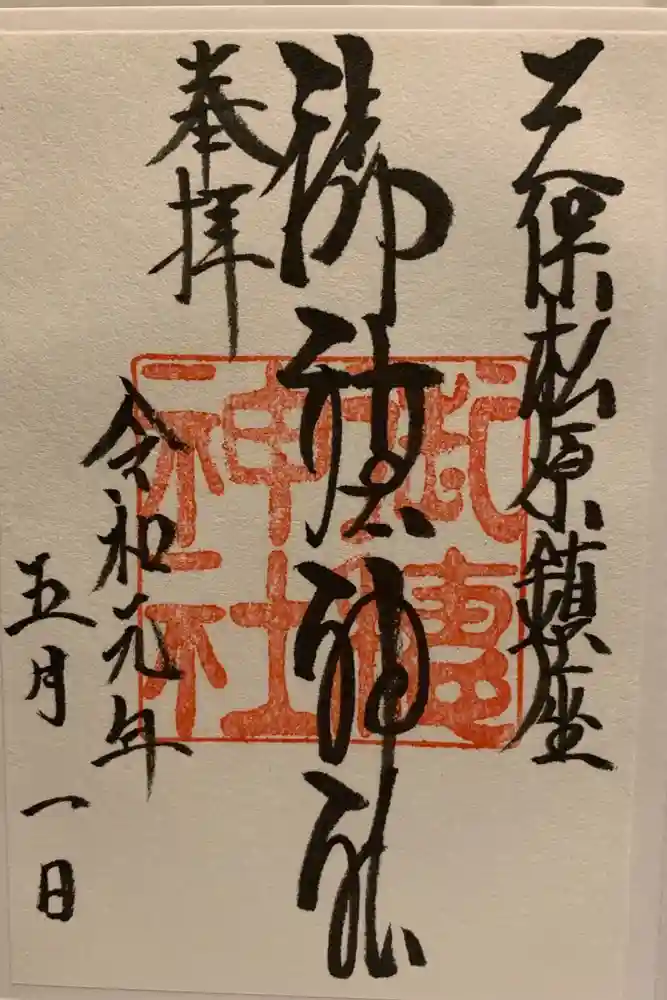 三保松原鎮座
御穂神社
奉拝
令和元年
五月一日
御穗
神社